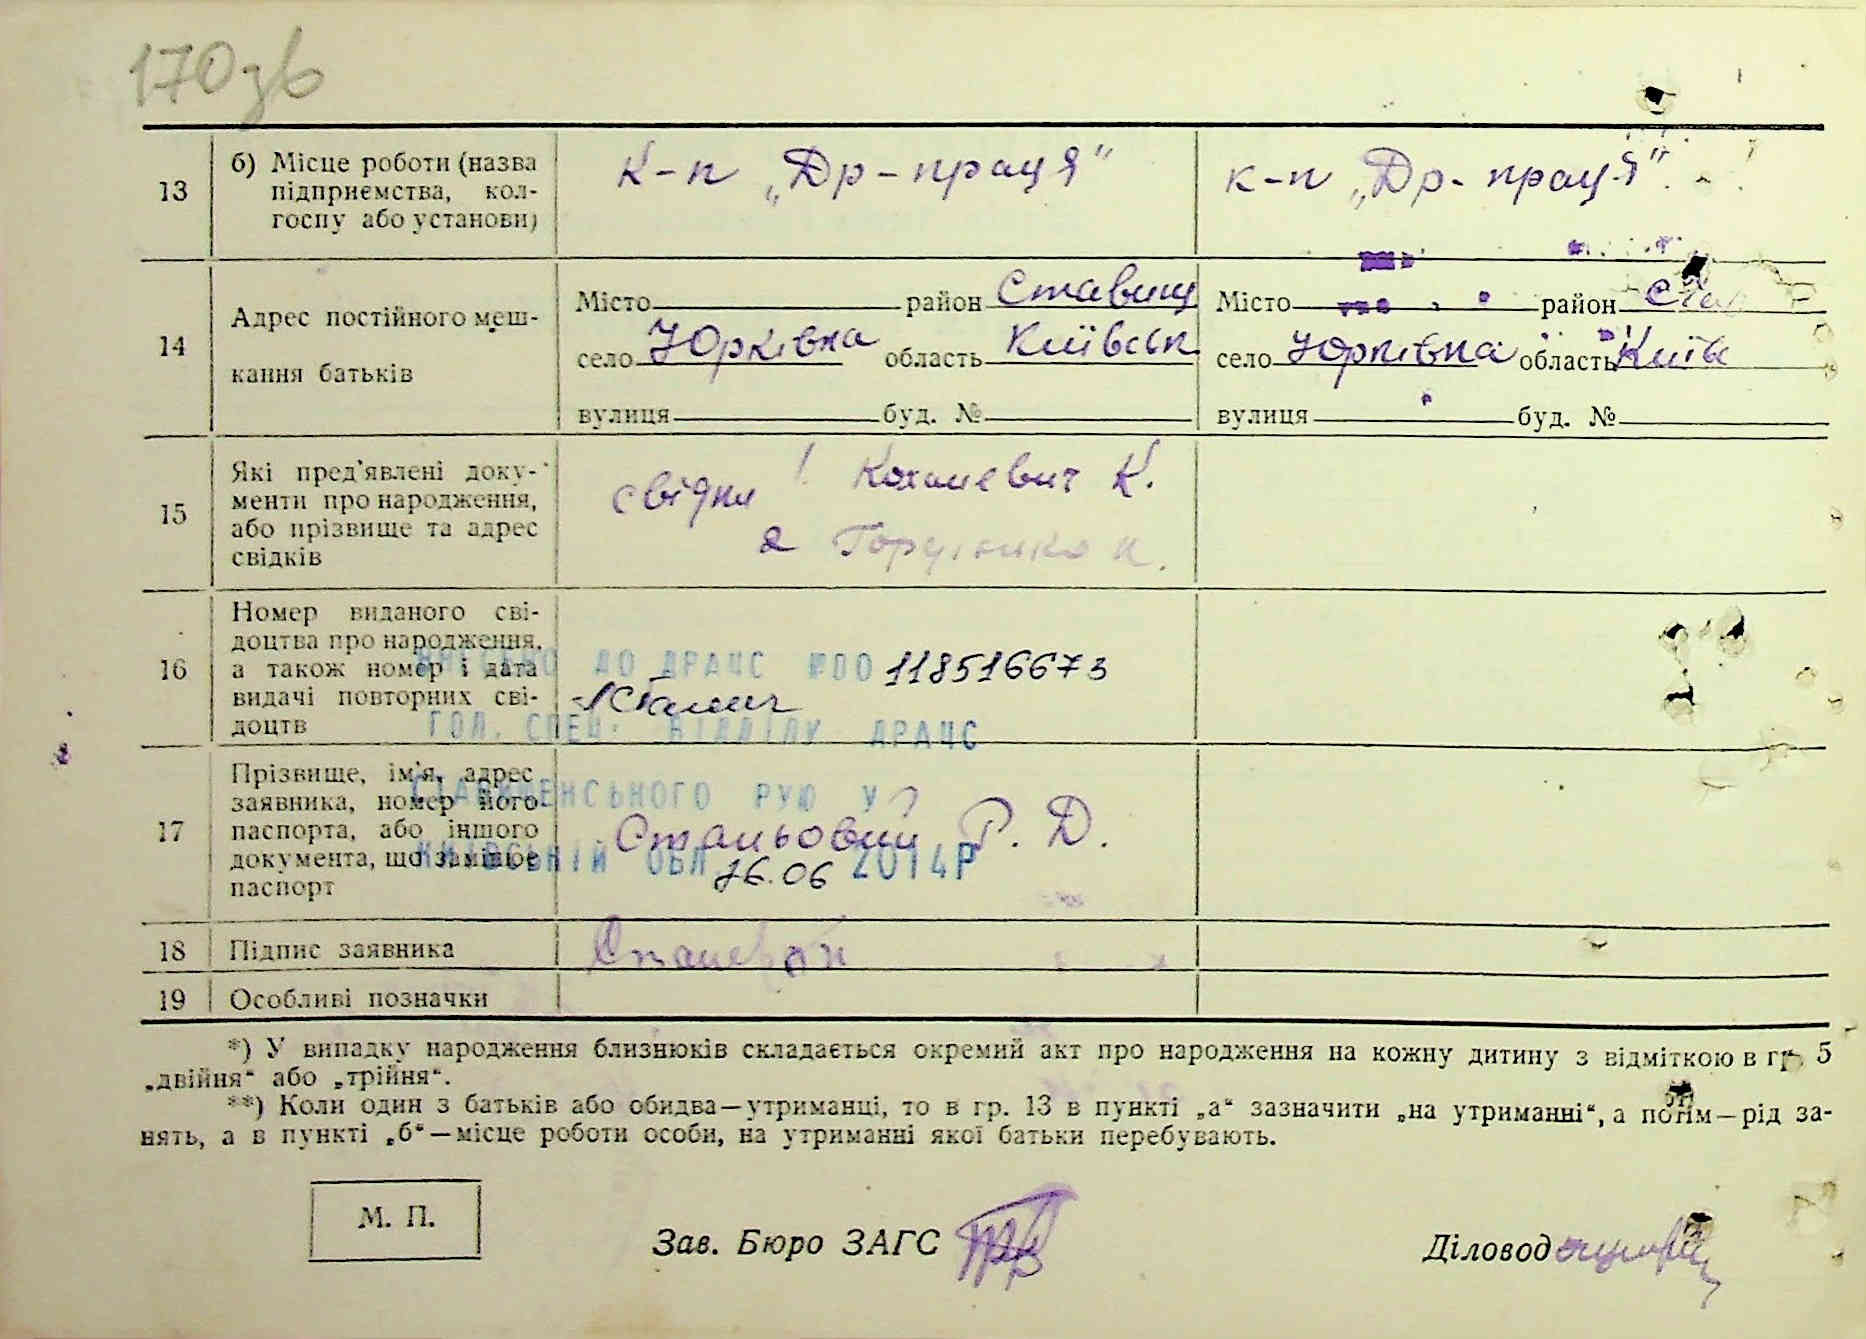 170 зв
13
б) Місце роботи (назва
підприємства, кол-
госпу або установи)
К-п „Др-праця"
к-п „Др-праця".
14
Адрес постійного меш-
кання батьків
Місто район Ставищ
село Юрківка область Київськ
вулиця буд. №
Місто район Став
село Юрківка область Київ
вулиця буд. №
15
Які пред'явлені доку-
менти про народження,
або прізвище та адрес
свідків
свідки К.
16
Номер виданого сві-
доцтва про народження,
а також номер і дата
видачі повторних сві-
доцтв
ВНЕСЕНО ДО ДРАЦС №00118516673
ГОЛ. СПЕЦ. ВІДДІЛУ ДРАЦС
17
Прізвище, ім'я, адрес
заявника, номер його
паспорта, або іншого
документа, що замінює
паспорт
СТАВИЩЕНСЬКОГО РУЮ У
Р. Д.
КИЇВСЬКІЙ ОБЛ 26.06 2014Р
18
Підпис заявника
19
Особливі позначки
*) У випадку народження близнюків складається окремий акт про народження на кожну дитину з відміткою в гр. 5
„двійня“ або „трійня“.
**) Коли один з батьків або обидва—утриманці, то в гр. 13 в пункті „а“ зазначити „на утриманні“, а потім—рід за-
нять, а в пункті „б“—місце роботи особи, на утриманні якої батьки перебувають.
М. П.
Зав. Бюро ЗАГС
Діловод